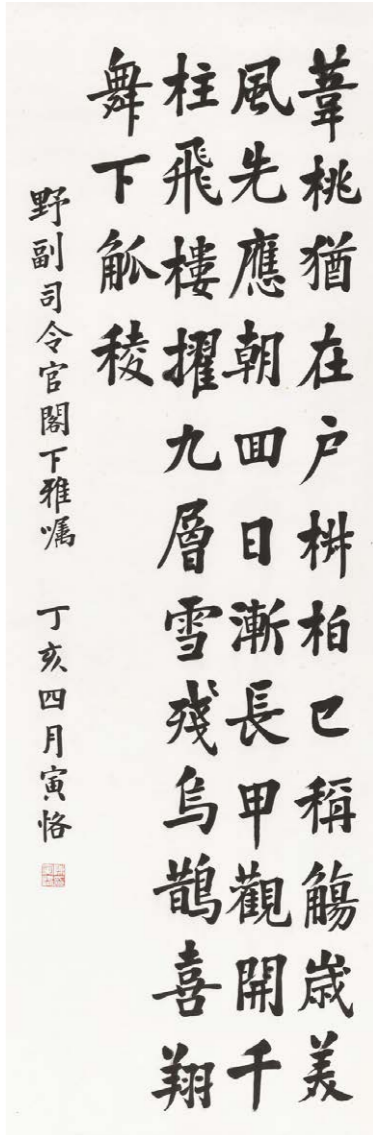 葦桃猶在户椒柏已稱觴歲美
風先應朝囬日漸長甲觀開千
柱飛樓擢九層雪殘烏鵲喜翔
舞下觚稜
野副司令官閣下雅嘱 丁亥四月寅恪